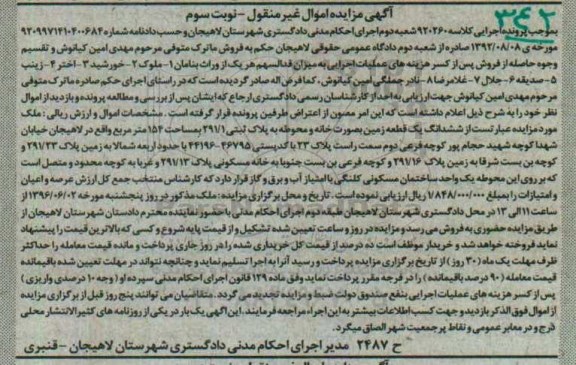 ۳۴۲
آگهی مزایده اموال غیر منقول - نوبت سوم
بموجب پرونده اجرایی کلاسه ۹۲۰۲۶۰ شعبه دوم اجرای احکام مدنی دادگستری شهرستان لاهیجان و حسب دادنامه شماره ۹۲۰۹۹۷۱۴۱۰۴۰۰۶۸۴
مورخه ی ۱۳۹۲/۰۸/۰۸ صادره از شعبه دوم دادگاه عمومی حقوقی لاهیجان حکم به فروش ماترک متوفی مرحوم مهدی امین کیانوش و تقسیم
وجوه حاصله از فروش پس از کسر هزینه های عملیات اجرایی به میزان قدالسهم هر یک از وراث بنامان ۱- ملوک ۲- خورشید ۳- اختر ۴- زینب
۵- صدیقه ۶- جلال ۷- غلامرضا ۸- نادر جملگی امین کیانوش، کما فرض اله صادر گردیده است که در راستای اجرای حکم صادره ماترک متوفی
مرحوم مهدی امین کیانوش جهت ارزیابی به احد از کارشناسان رسمی دادگستری ارجاع که ایشان پس از بررسی و مطالعه پرونده و بازدید از اموال
نظر خود را به شرح ذیل اعلام داشته است که این امر مصون از اعتراض طرفین پرونده قرار گرفته است. مشخصات اموال و ارزش ریالی: ملک
مورد مزایده عبارتست از ششدانگ یک قطعه زمین بصورت خانه و محوطه به پلاک ثبتی ۲۹۱/۱ بمساحت ۱۵۴ متر مربع واقع در لاهیجان خیابان
شهدا کوچه شهید حجام پور کوچه فرعی دوم سمت راست پلاک ۲۳ با کدپستی ۴۶۷۹۵-۴۴۱۹۶ با حدود اربعه شمالا به زمین پلاک ۲۹۱/۲۳ و
کوچه بن بست شرقا به زمین پلاک ۲۹۱/۱۶ و کوچه فرعی بن بست جنوبا به خانه مسکونی پلاک ۲۹۱/۱۳ و غربا به کوچه محدود و متصل است
که بر روی این محوطه یک واحد ساختمان مسکونی کلنگی با امتیاز آب و برق و گاز قرار دارد که کارشناس منتخب جمع کل ارزش عرصه و اعیان
و امتیازات را بمبلغ ۱/۸۴۸/۰۰۰/۰۰۰ ریال ارزیابی نموده است. تاریخ و محل برگزاری مزایده: ملک مذکور در روز پنجشنبه مورخه ۱۳۹۶/۰۶/۰۲ از
ساعت ۱۱ الی ۱۲ در محل دادگستری شهرستان لاهیجان طبقه دوم اجرای احکام مدنی با حضور نماینده محترم دادستان شهرستان لاهیجان از
طریق مزایده حضوری به فروش می رسد و مزایده در روز و ساعت تعیین شده تشکیل و از قیمت پایه شروع و کسی که بالاترین قیمت را پیشنهاد
نماید فروخته خواهد شد و خریدار موظف است ده درصد از قیمت کل خریداری شده را در روز جاری پرداخت و مانده قیمت معامله را حداکثر
ظرف مهلت یک ماه (۳۰ روز) از تاریخ برگزاری مزایده پرداخت و رسید آنرا به اجرا تسلیم نماید و چنانچه نتواند در مهلت تعیین شده باقیمانده
قیمت معامله (۹۰ درصد باقیمانده) را در فرجه مقرر پرداخت نماید وفق ماده ۱۲۹ قانون اجرای احکام مدنی سپرده او (وجه ۱۰ درصدی واریزی)
پس از کسر هزینه های عملیات اجرایی بنفع صندوق دولت ضبط و مزایده تجدید می گردد. متقاضیان می توانند پنج روز قبل از برگزاری مزایده
از اموال فوق الذکر بازدید و جهت کسب اطلاعات بیشتر به این اجراء مراجعه فرمایند. این آگهی یک بار در یکی از روزنامه های کثیر الانتشار محلی
درج و در معابر عمومی و نقاط پر جمعیت شهر الصاق میگردد.
ح ۲۴۸۷ مدیر اجرای احکام مدنی دادگستری شهرستان لاهیجان - قنبری